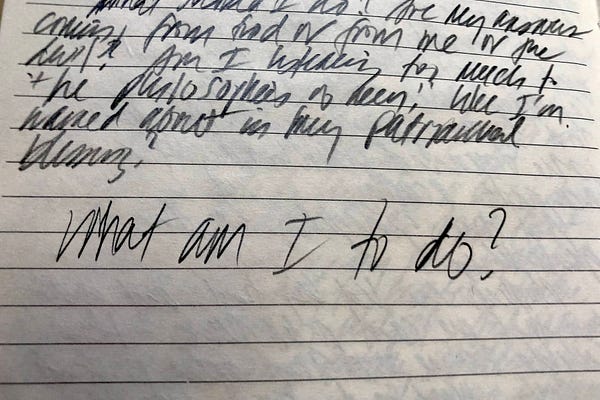 What should I do? Are my answers
coming from God or from me or the
devil? Am I listening too much to
the philosophies of men, like I'm
warned about in my patriarchal
blessing?
What am I to do?